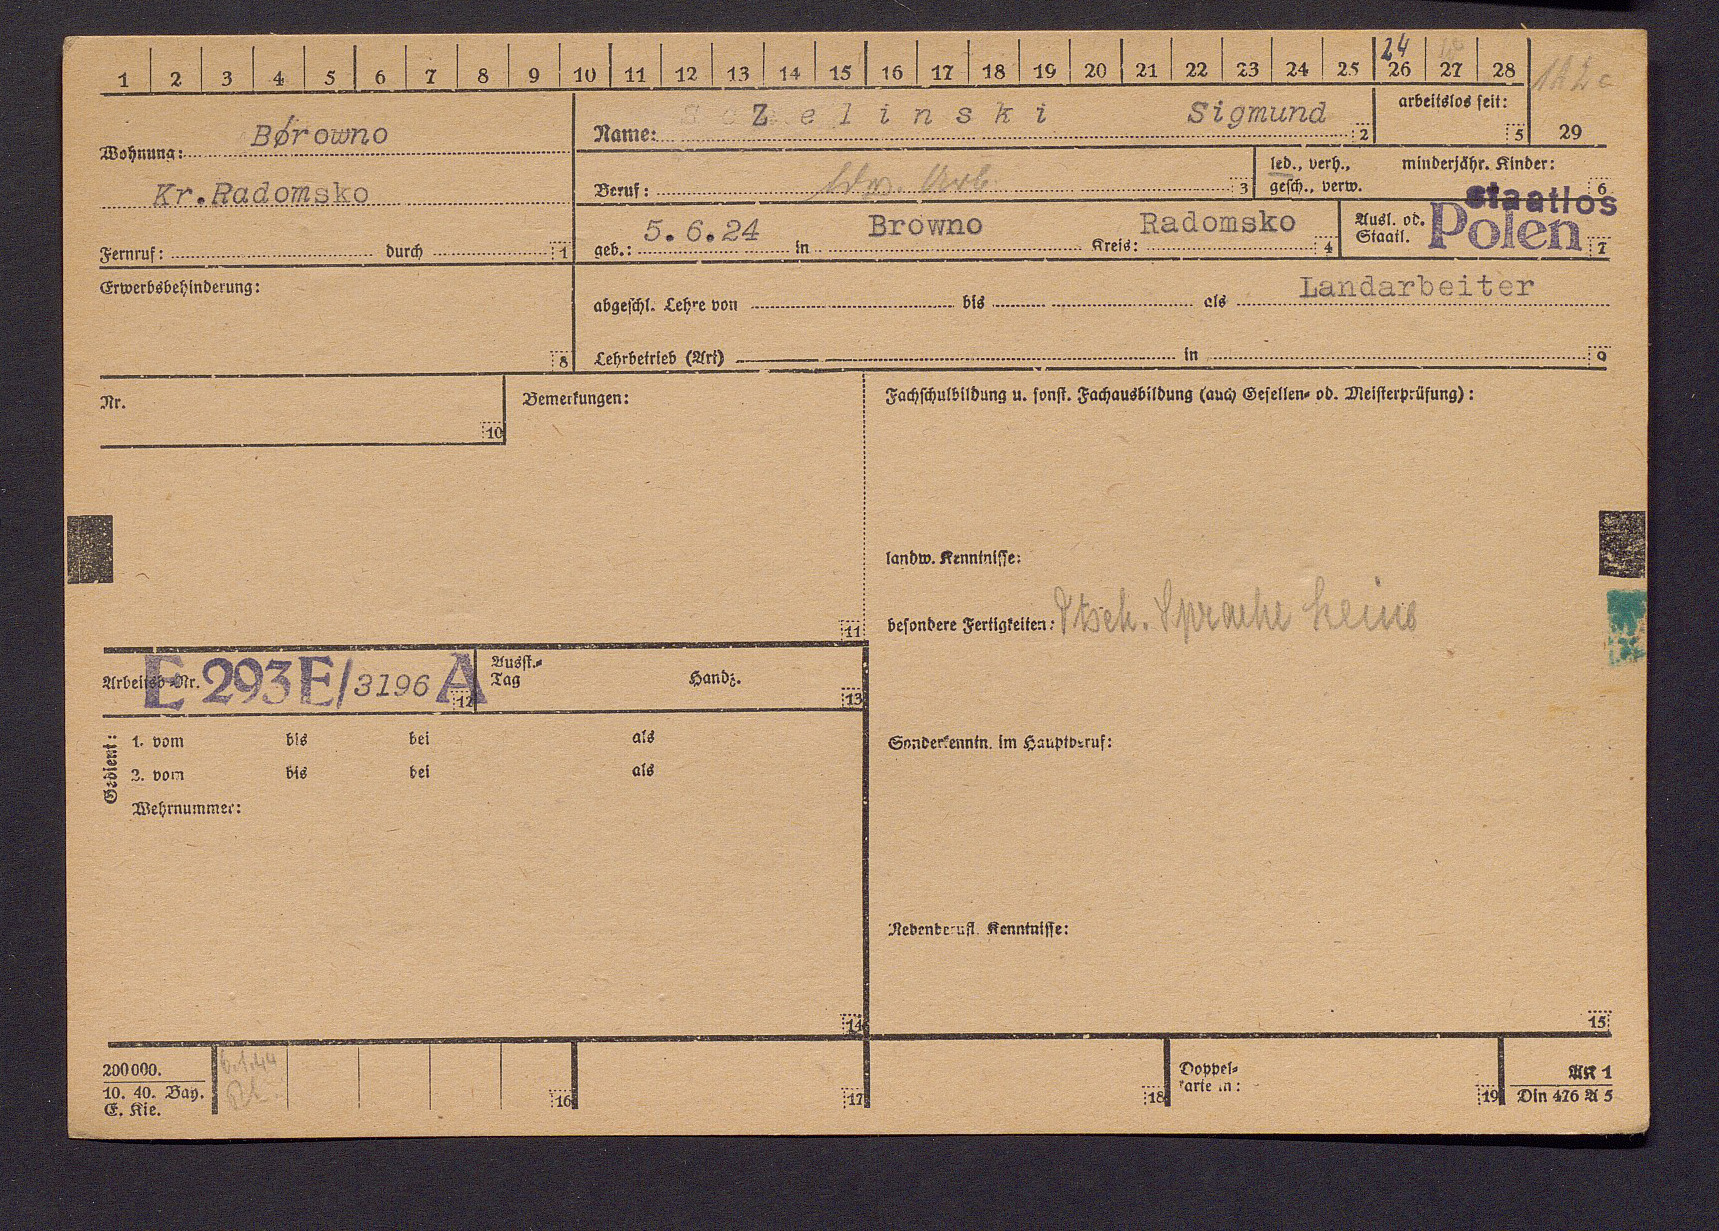 1 2 3 4 5 6 7 8 9 10 11 12 13 14 15 16 17 18 19 20 21 22 23 24 25 26 27 28
24
Wohnung: Børowno
Kr.Radomsko
Fernruf: durch 1
Name: Zelinski Sigmund 2
arbeitslos seit: 5
29
Beruf: ldw. Arb. 3
led., verh., gesch., verw.
minderjähr. Kinder: 6
geb.: 5.6.24 in Browno Kreis: Radomsko 4
Ausl. od. Staatl. staatlos Polen 7
Erwerbsbehinderung: 8
abgeschl. Lehre von bis als Landarbeiter
Lehrbetrieb (Art) in 9
Nr. 10
Bemerkungen: 11
Fachschulbildung u. sonst. Fachausbildung (auch Gesellen- od. Meisterprüfung):
landw. Kenntnisse:
besondere Fertigkeiten: Dtsch. Sprache keine
Arbeitsb.-Nr. E 293E/3196 A 12
Ausst.-Tag Handz. 13
Gedient:
1. vom bis bei als
2. vom bis bei als
Wehrnummer:
14
Sonderkenntn. im Hauptberuf:
Nebenberufl. Kenntnisse:
15
200000.
10. 40. Bay.
E. Kie.
6.1.44
16
17
18
Doppel-
karte in: 19
AK 1
Din 476 A 5